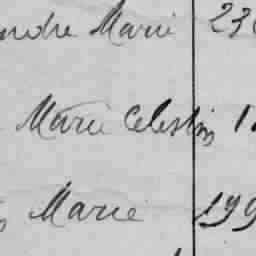 ndre Marie 23
Marie Celestin 1
Marie 199